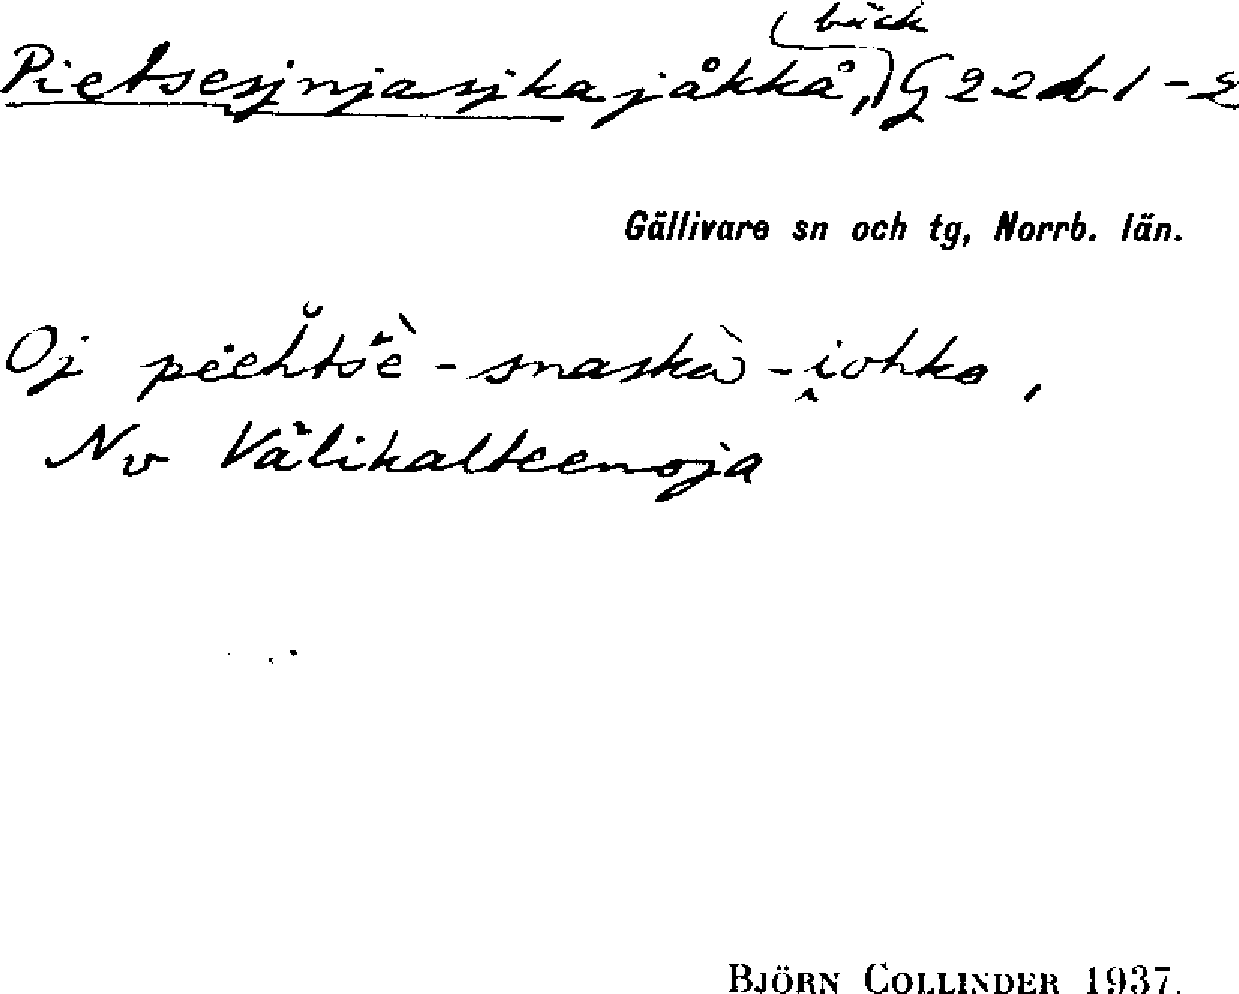 bäck
Pietsesjnjasjkajåkkå, G 22 b 1-2
Gällivare sn och tg, Norrb. län.
Oj -snaskà̀-i̭ohko,
Nv Välikalteenoja
BJÖRN COLLINDER 1937.